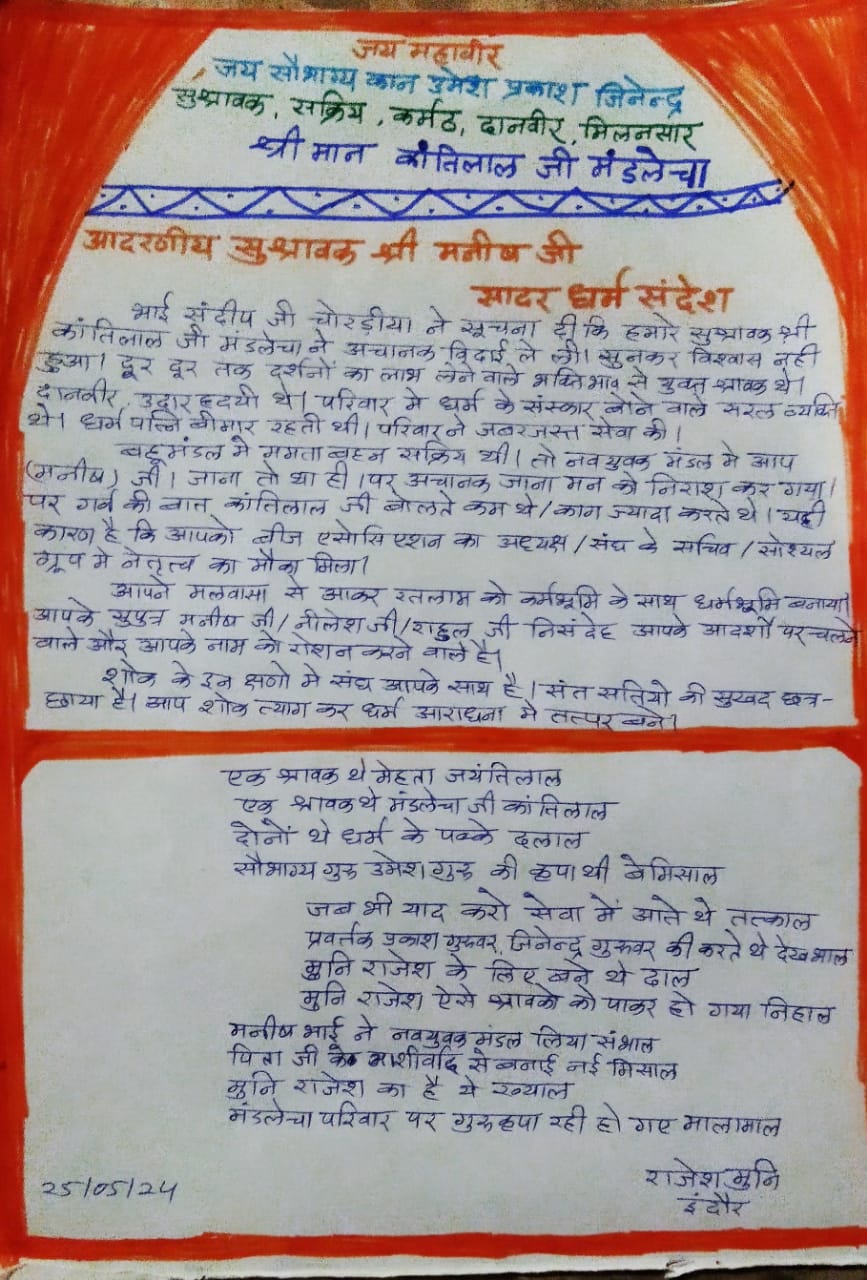 जय महावीर
जय सौभाग्य कान उमेश प्रकाश जिनेन्द्र
सुश्रावक, सक्रिय, कर्मठ, दानवीर, मिलनसार
श्री मान कांतिलाल जी मंडलेचा
आदरणीय सुश्रावक श्री मनीष जी
सादर धर्म संदेश
भाई संदीप जी चोरड़ीया ने सूचना दी कि हमारे सुश्रावक श्री
कांतिलाल जी मंडलेचा ने अचानक विदाई ले ली। सुनकर विश्वास नही
हुआ। दूर दूर तक दर्शनों का लाभ लेने वाले भक्तिभाव से युक्त श्रावक थे।
दानवीर, उदार हृदयी थे। परिवार मे धर्म के संस्कार बोने वाले सरल व्यक्ति
थे। धर्म पत्नि बीमार रहती थी। परिवार ने जबरजस्त सेवा की।
बहू मंडल मे ममता बहन सक्रिय थी। तो नवयुवक मंडल मे आप
(मनीष) जी। जाना तो था ही। पर अचानक जाना मन को निराश कर गया।
पर गर्व की बात कांतिलाल जी बोलते कम थे/ काम ज्यादा करते थे। यही
कारण है कि आपको बीज एसोसिएशन का अध्यक्ष/ संघ के सचिव/ सोश्यल
ग्रूप मे नेतृत्व का मौका मिला।
आपने मलवासा से आकर रतलाम को कर्मभूमि के साथ धर्मभूमि बनाया।
आपके सुपुत्र मनीष जी/ नीलेश जी/राहुल जी निसंदेह आपके आदर्शों पर चलने
वाले और आपके नाम को रोशन करने वाले है।
शोक के इन क्षणो मे संघ आपके साथ है। संत सतियो की सुखद छत्र-
छाया है। आप शोक त्याग कर धर्म आराधना मे तत्पर बने।
एक श्रावक थे मेहता जयंतिलाल
एक श्रावक थे मंडलेचा जी कांतिलाल
दोनों थे धर्म के पक्के दलाल
सौभाग्य गुरु उमेश गुरु की कृपा थी बेमिसाल
जब भी याद करो सेवा में आते थे तत्काल
प्रवर्तक प्रकाश गुरुवर, जिनेन्द्र गुरुवर की करते थे देखभाल
मुनि राजेश के लिए बने थे ढाल
मुनि राजेश ऐसे श्रावको को पाकर हो गया निहाल
मनीष भाई ने नवयुवक मंडल लिया संभाल
पिता जी के आशीर्वाद से बनाई नई मिसाल
मुनि राजेश का है ये ख्याल
मंडलेचा परिवार पर गुरु कृपा रही हो गए मालामाल
राजेश मुनि
25/05/24
इंदौर